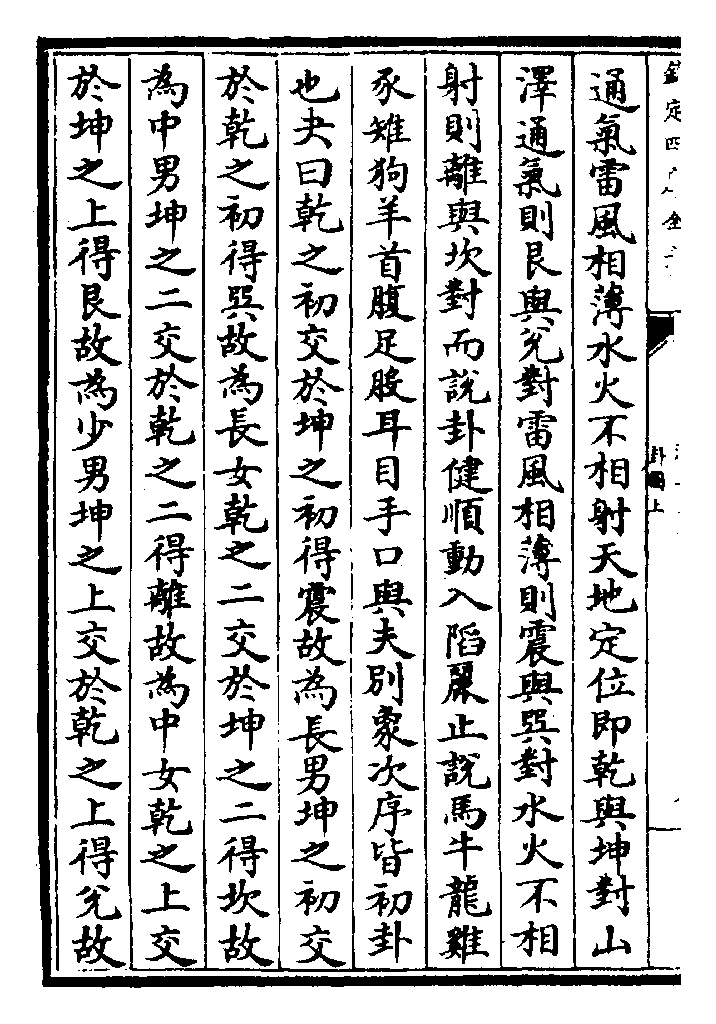 卦圖上
通氣雷風相薄水火不相射天地定位即乾與坤對山
澤通氣則艮與兊對雷風相薄則震與巽對水火不相
射則離與坎對而說卦健順動入陷麗止說馬牛龍雞
豕雉狗羊首腹足股耳目手口與夫別象次序皆初卦
也夫曰乾之初交於坤之初得震故為長男坤之初交
於乾之初得巽故為長女乾之二交於坤之二得坎故
為中男坤之二交於乾之二得離故為中女乾之上交
於坤之上得艮故為少男坤之上交於乾之上得兊故